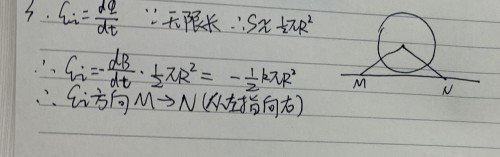 3. εi=dΦ/dt ∵无限长 ∴S≈½πR²
∴ εi=-dB/dt·½πR²=-½kπR²
∴ εi方向 M→N(从左指向右)
M N